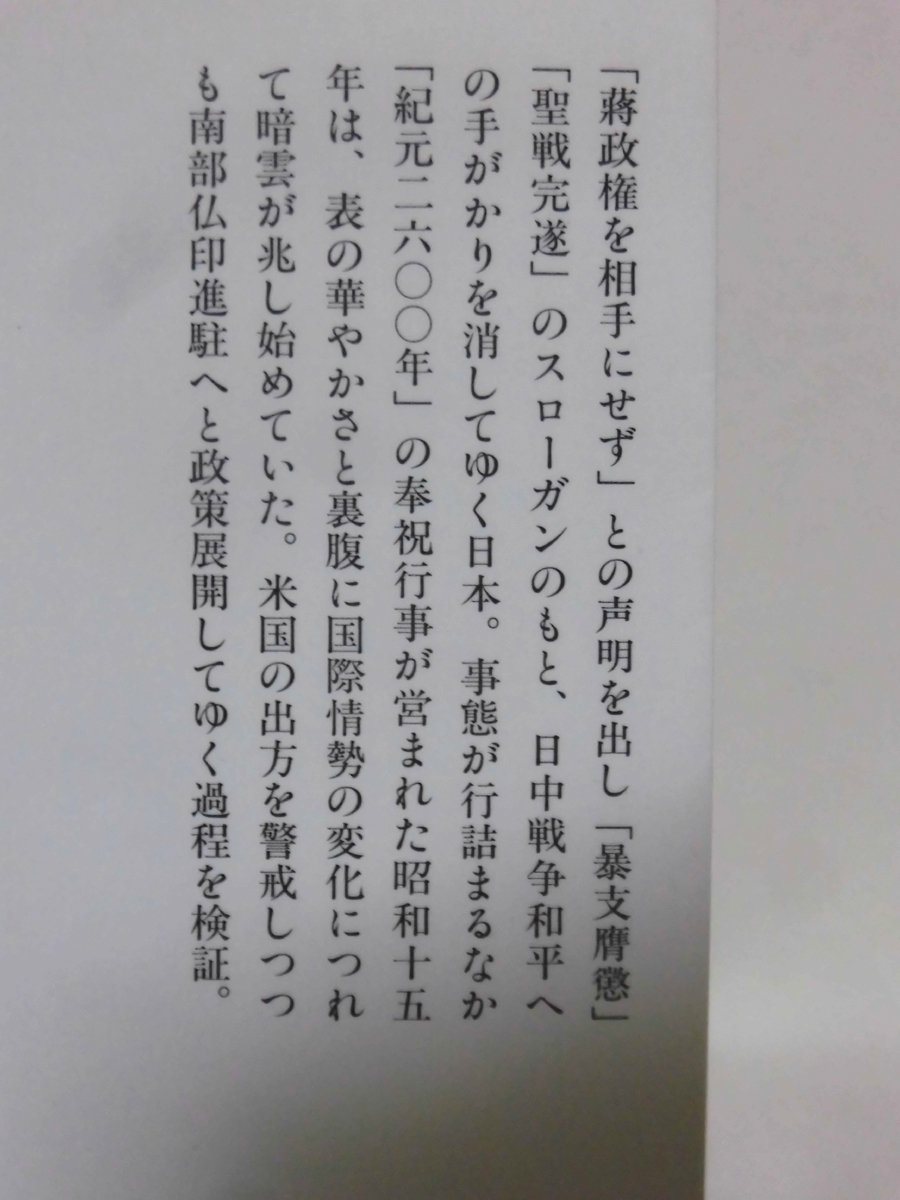 「蔣政権を相手にせず」との声明を出し「暴支膺懲」
「聖戦完遂」のスローガンのもと、日中戦争和平へ
の手がかりを消してゆく日本。事態が行詰まるなか
「紀元二六〇〇年」の奉祝行事が営まれた昭和十五
年は、表の華やかさと裏腹に国際情勢の変化につれ
て暗雲が兆し始めていた。米国の出方を警戒しつつ
も南部仏印進駐へと政策展開してゆく過程を検証。